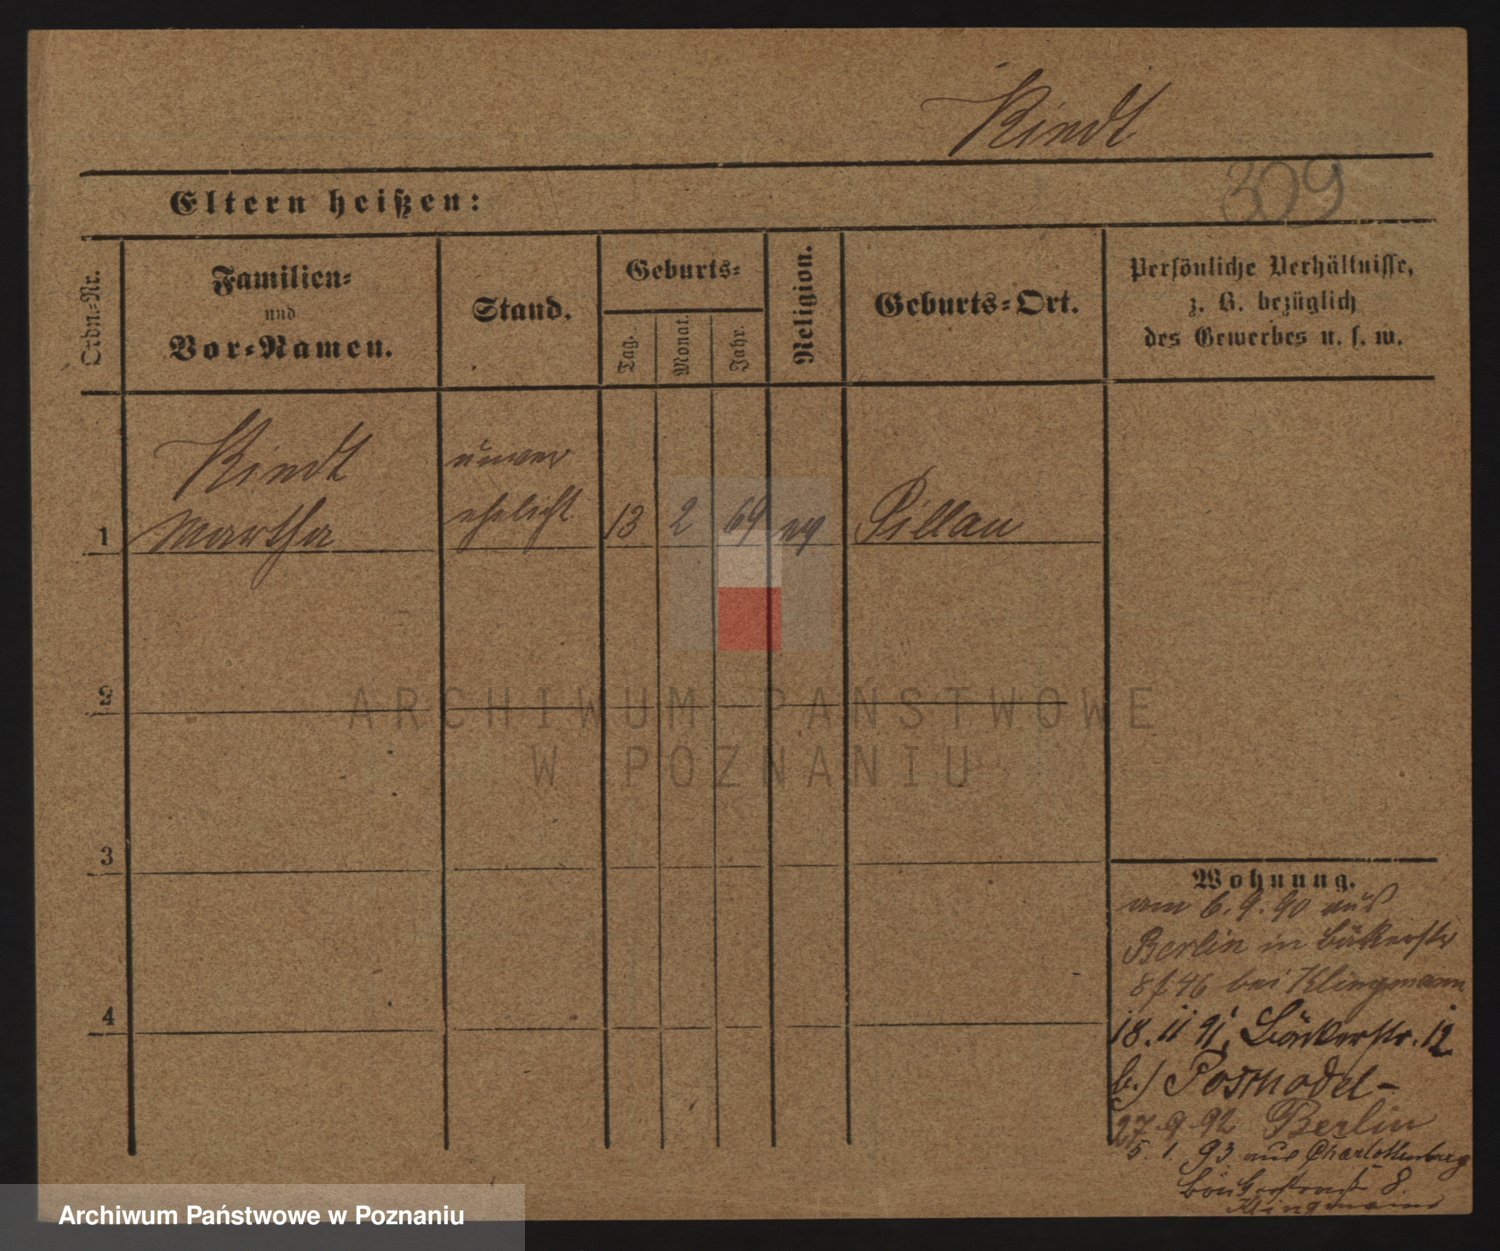 Riedt
309
Eltern heißen:
Ordn.-Nr.
Familien-
und
Vor-Namen.
Stand.
Geburts-
Tag.
Monat.
Jahr.
Religion.
Geburts-Ort.
Persönliche Verhältnisse,
z. B. bezüglich
des Gewerbes u. s. w.
Riedt
Martha
unver
ehelicht
1
13
2
64
ev
Pillau
2
3
4
ARCHIWUM PAŃSTWOWE
W POZNANIU
Wohnung.
am 6.9.90 aus
Berlin in Bäkerstr
8 bei Klingmann
18.11 91. Bäckerstr. 12
b.)
27.9.92 Berlin
5.1.93 aus Charlottenburg
Bäckerstraße 8.
Klingmann
Archiwum Państwowe w Poznaniu